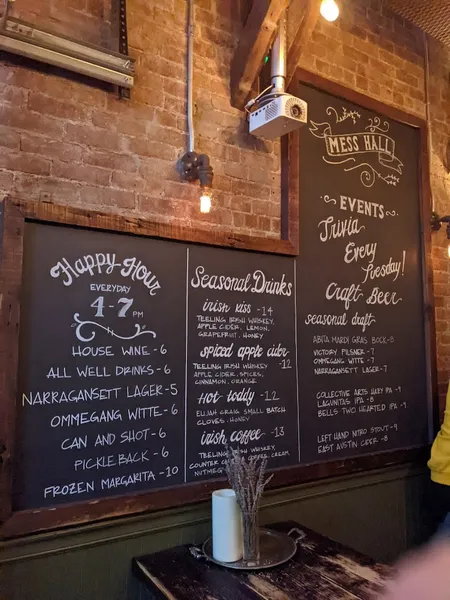 Happy Hour
EVERYDAY
4-7 PM
HOUSE WINE - 6
ALL WELL DRINKS - 6
NARRAGANSETT LAGER - 5
OMMEGANG WITTE - 6
CAN AND SHOT - 6
PICKLEBACK - 6
FROZEN MARGARITA - 10
Seasonal Drinks
irish kiss - 14
TEELING IRISH WHISKEY,
APPLE CIDER, LEMON,
GRAPEFRUIT, HONEY
spiced apple cider
TEELING IRISH WHISKEY - 12
APPLE CIDER, SPICES,
CINNAMON, ORANGE
Hot toddy - 12
ELIJAH CRAIG SMALL BATCH
CLOVES, HONEY
irish coffee - 13
TEELING IRISH WHISKEY
COUNTER CREAM
NUTMEG
MESS HALL
EVENTS
Trivia
Every
Tuesday!
Craft Beer
seasonal draft
ABITA MARDI GRAS BOCK - 8
VICTORY PILSNER - 7
OMMEGANG WITTE - 7
NARRAGANSETT LAGER - 7
COLLECTIVE ARTS HAZY IPA - 9
LAGUNITAS IPA - 8
BELLS TWO HEARTED IPA - 9
LEFT HAND NITRO STOUT - 9
EAST AUSTIN CIDER - 8